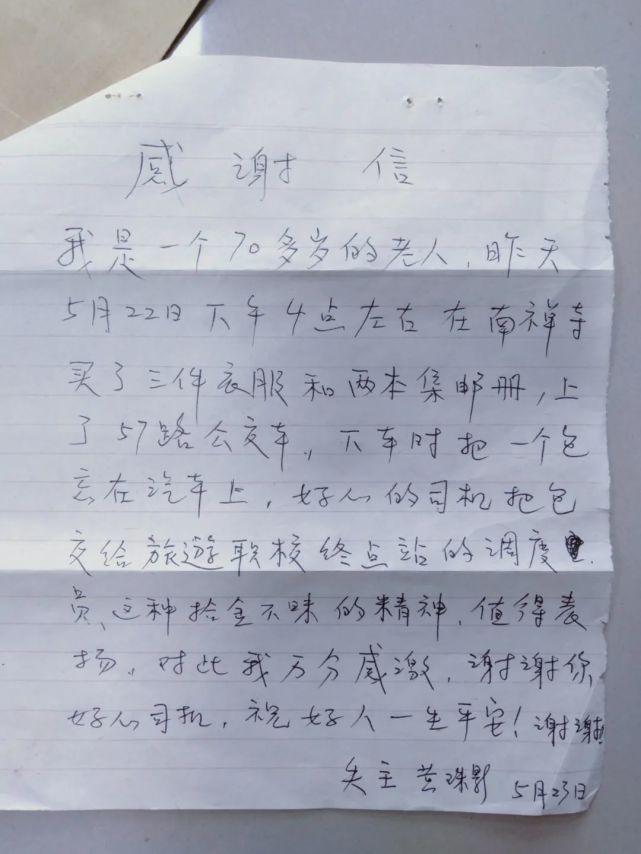 感谢信
我是一个70多岁的老人，昨天
5月22日下午4点左右在南禅寺
买了三件衣服和两本集邮册，上
了57路公交车，下车时把一个包
忘在汽车上，好心的司机把包
交给旅遊职校终点站的调度
员、这种拾金不昧的精神，值得表
扬，对此我万分感激，谢谢你
好心司机，祝好人一生平安！谢谢
失主 黄珠影 5月23日